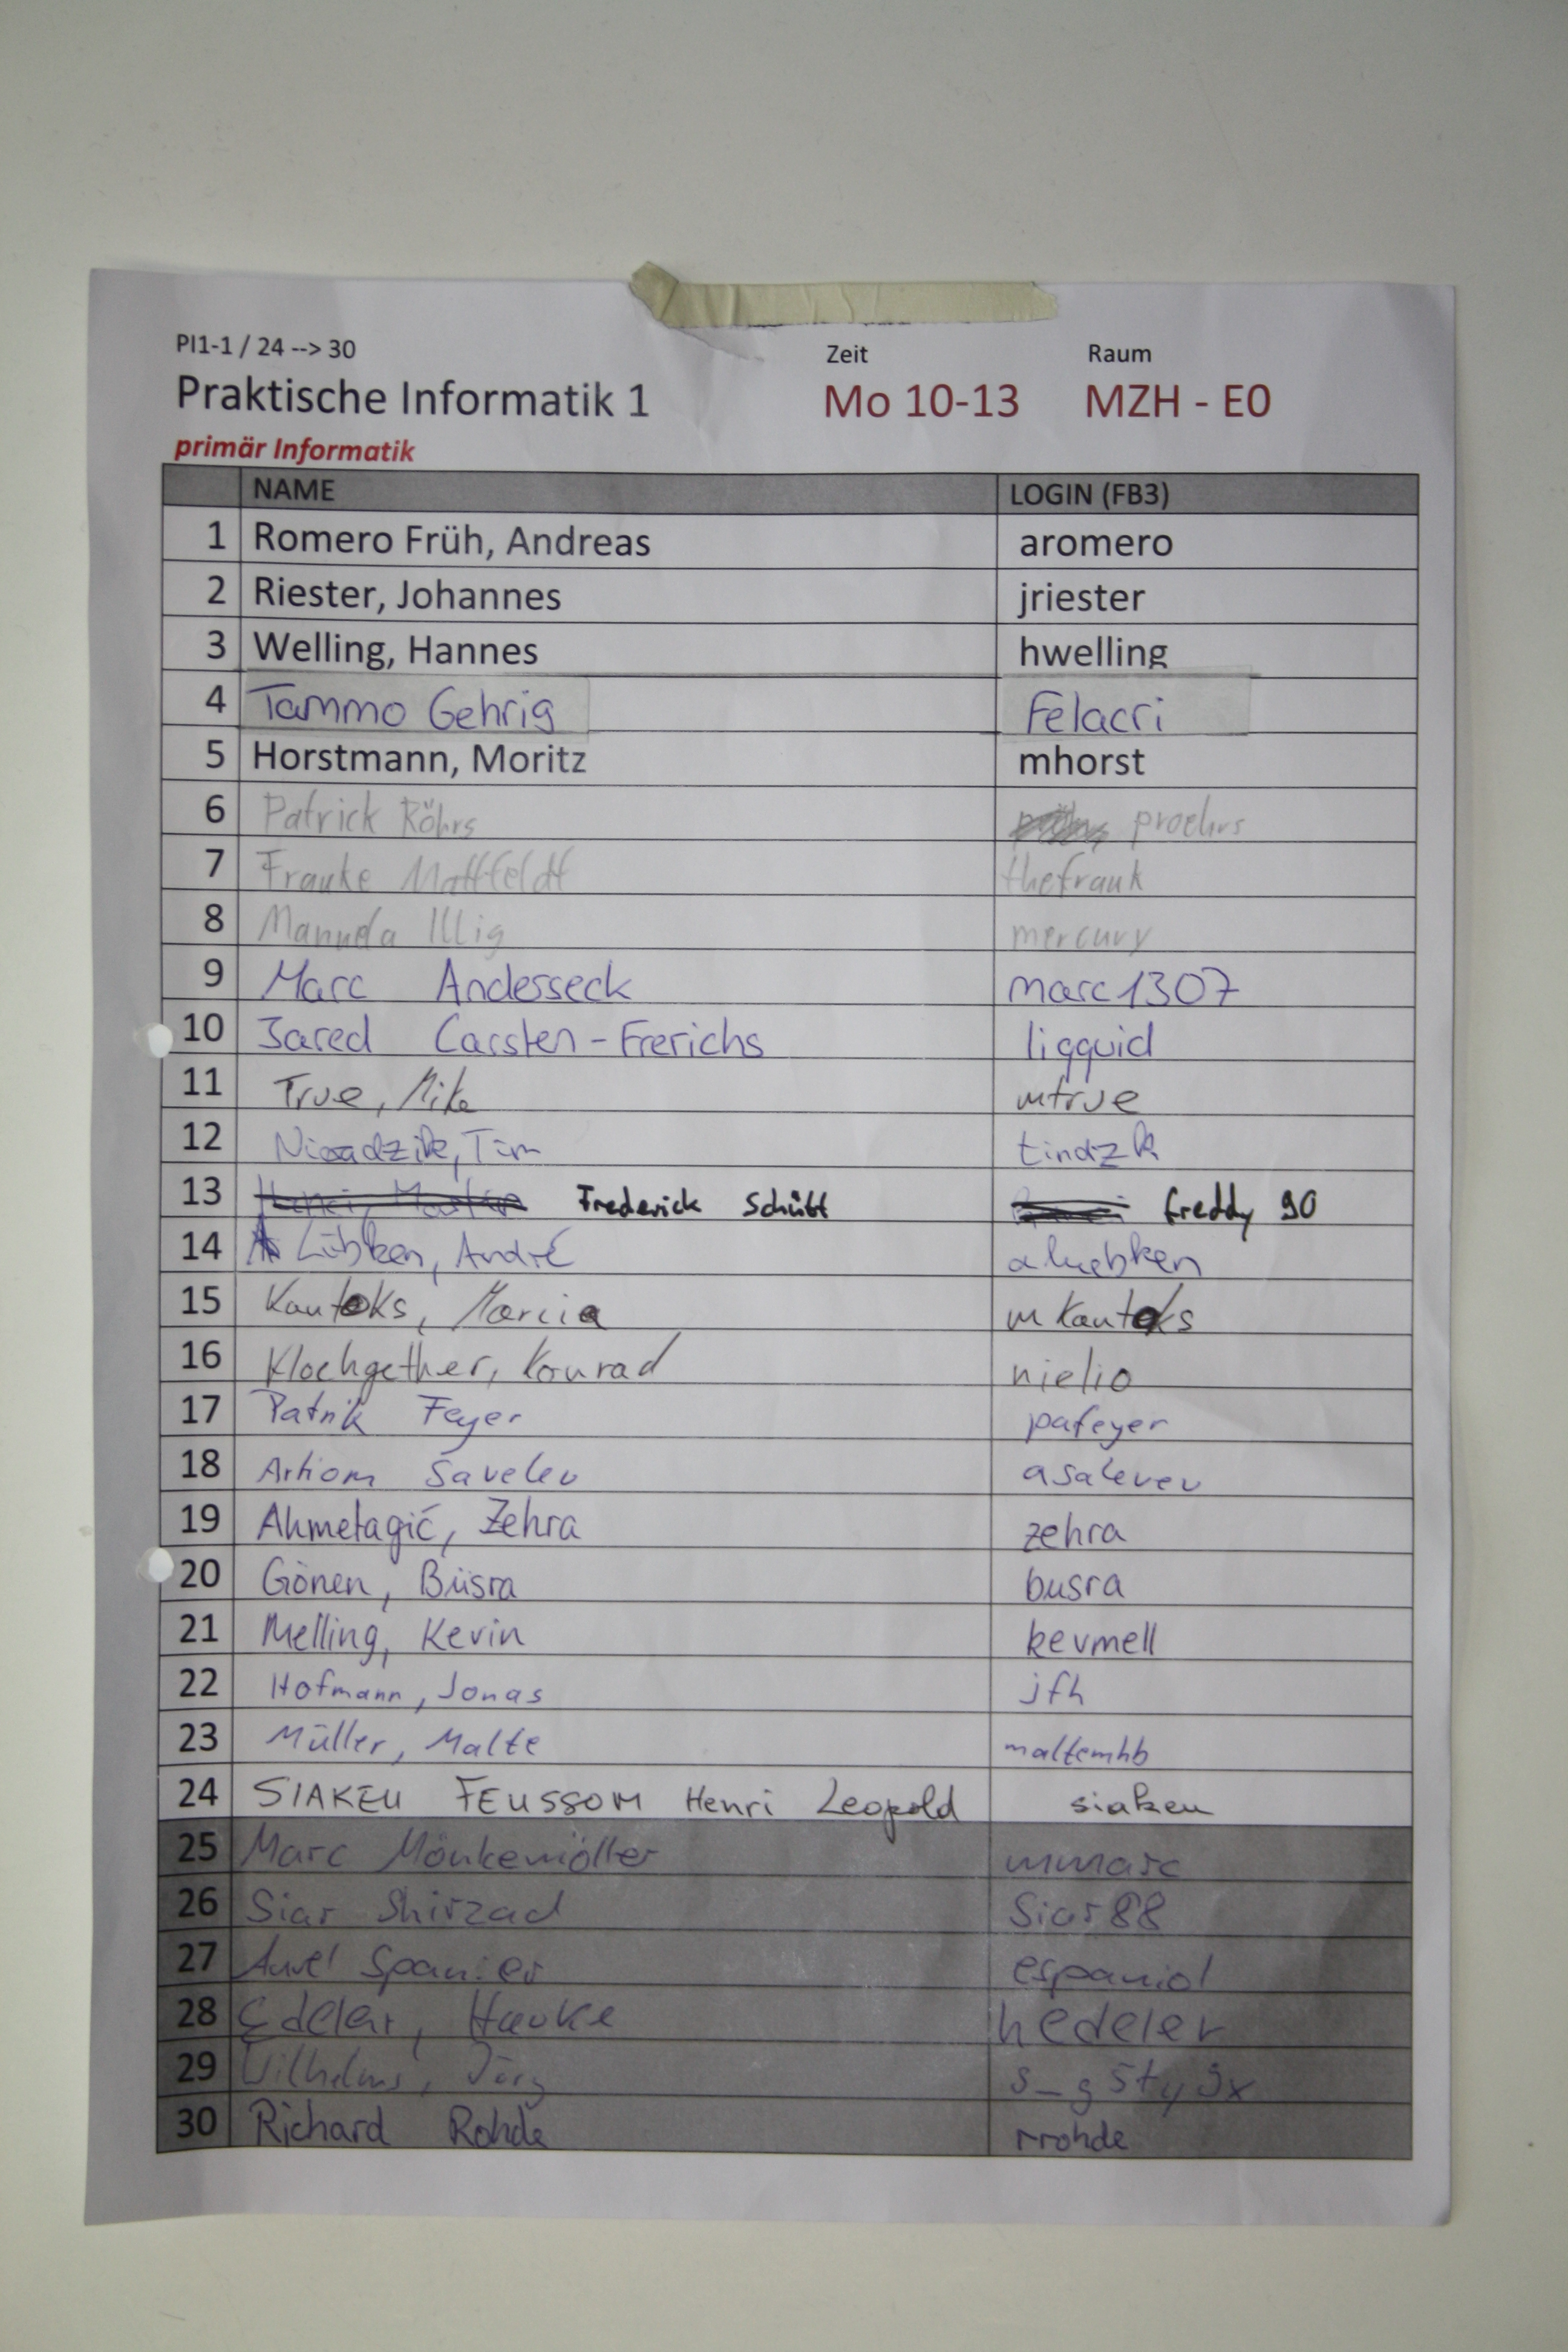 PI1-1 / 24 --> 30 Zeit Raum
Praktische Informatik 1 Mo 10-13 MZH - E0
primär Informatik
NAME LOGIN (FB3)
1 Romero Früh, Andreas aromero
2 Riester, Johannes jriester
3 Welling, Hannes hwelling
4 Tammo Gehrig Felacri
5 Horstmann, Moritz mhorst
6 Patrick Röhrs proehrs
7 Frauke Mattfeldt thefrauk
8 Manuela Illig mercury
9 Marc Andersseck marc1307
10 Jared Carsten-Frerichs liqquid
11 True, Mike mtrue
12 Tim tindzk
13 Frederick Schütt freddy90
14 Lübken, André aluebken
15 Kautoks, Marcia mkautoks
16 Klochgether, Konrad nielio
17 Patrik Feyer pafeyer
18 Artiom Savelev asalevev
19 Ahmetagić, Zehra zehra
20 Gönen, Büsra busra
21 Melling, Kevin kevmell
22 Hofmann, Jonas jfh
23 Müller, Malte maltemhb
24 SIAKEU FEUSSOM Henri Leopold siakeu
25 Marc Mönkemöller mmarc
26 Siar Shirzad Siar88
27 Spanier espaniol
28 Edeler, Hauke hedeler
29 Wilhelms, Jörg
30 Richard Rohde rrohde